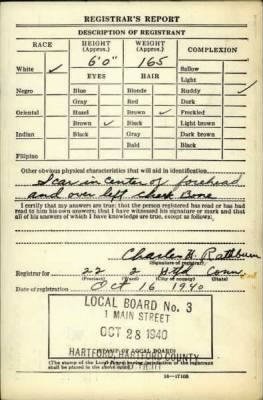 REGISTRAR'S REPORT
DESCRIPTION OF REGISTRANT
RACE HEIGHT (Approx.) WEIGHT (Approx.) COMPLEXION
White ✓ 6'0" 165 Sallow
EYES HAIR Light
Negro Blue Blonde Ruddy ✓
Gray Red Dark
Oriental Hazel Brown ✓ Freckled
Brown ✓ Black Light brown
Indian Black Gray Dark brown
Bald Black
Filipino
Other obvious physical characteristics that will aid in identification
Scar in center of forehead
and over left cheek Bone
I certify that my answers are true; that the person registered has read or has
had read to him his own answers; that I have witnessed his signature or mark and that
all of his answers of which I have knowledge are true, except as follows:
Charles H. Rathbun
(Signature of registrar)
Registrar for 22 2 Htfd Conn
(Precinct) (Ward) (City or county) (State)
Date of registration Oct 16 1940
LOCAL BOARD No. 3
1 MAIN STREET
OCT 28 1940
(STAMP OF LOCAL BOARD)
HARTFORD, HARTFORD COUNTY
(The stamp of the Local Board having jurisdiction of the registrant
shall be placed in the above space)
16—17105